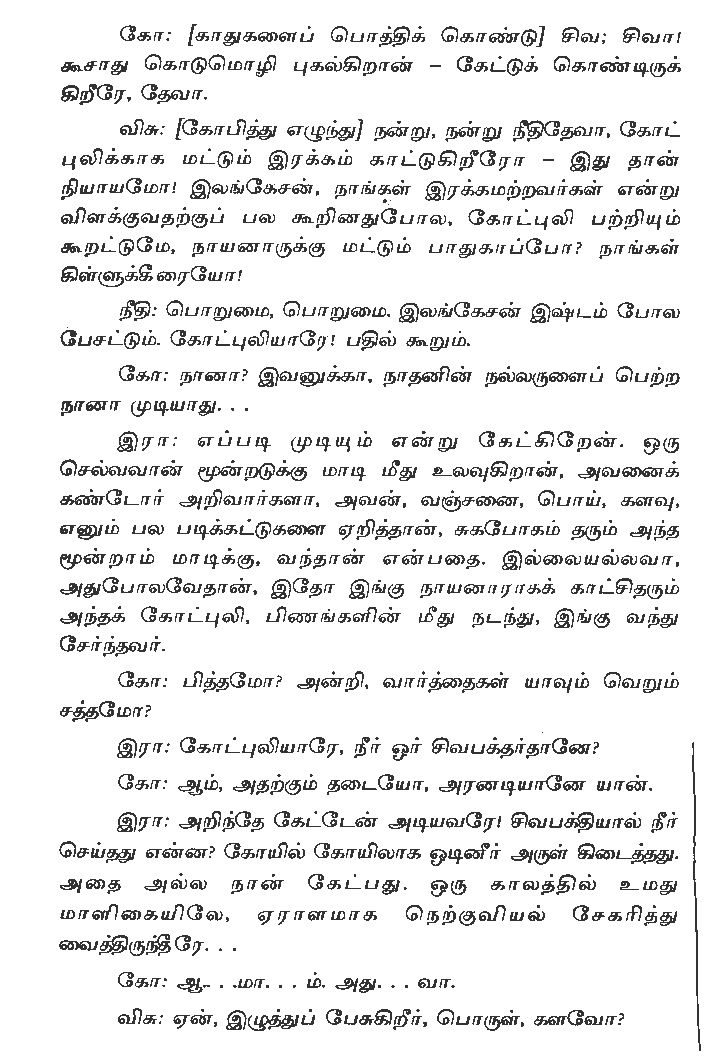 கோ: [காதுகளைப் பொத்திக் கொண்டு] சிவ; சிவா!
கூசாது கொடுமொழி புகல்கிறான் – கேட்டுக் கொண்டிருக்
கிறீரே, தேவா.
விசு: [கோபித்து எழுந்து] நன்று, நன்று நீதிதேவா, கோட்
புலிக்காக மட்டும் இரக்கம் காட்டுகிறீரோ – இது தான்
நியாயமோ! இலங்கேசன், நாங்கள் இரக்கமற்றவர்கள் என்று
விளக்குவதற்குப் பல கூறினதுபோல, கோட்புலி பற்றியும்
கூறட்டுமே, நாயனாருக்கு மட்டும் பாதுகாப்போ? நாங்கள்
கிள்ளுக்கீரையோ!
நீதி: பொறுமை, பொறுமை. இலங்கேசன் இஷ்டம் போல
பேசட்டும். கோட்புலியாரே! பதில் கூறும்.
கோ: நானா? இவனுக்கா, நாதனின் நல்லருளைப் பெற்ற
நானா முடியாது. . .
இரா: எப்படி முடியும் என்று கேட்கிறேன். ஒரு
செல்வவான் மூன்றடுக்கு மாடி மீது உலவுகிறான், அவனைக்
கண்டோர் அறிவார்களா, அவன், வஞ்சனை, பொய், களவு,
எனும் பல படிக்கட்டுகளை ஏறித்தான், சுகபோகம் தரும் அந்த
மூன்றாம் மாடிக்கு, வந்தான் என்பதை. இல்லையல்லவா,
அதுபோலவேதான், இதோ இங்கு நாயனாராகக் காட்சிதரும்
அந்தக் கோட்புலி, பிணங்களின் மீது நடந்து, இங்கு வந்து
சேர்ந்தவர்.
கோ: பித்தமோ? அன்றி, வார்த்தைகள் யாவும் வெறும்
சத்தமோ?
இரா: கோட்புலியாரே, நீர் ஓர் சிவபக்தர்தானே?
கோ: ஆம், அதற்கும் தடையோ, அரனடியானே யான்.
இரா: அறிந்தே கேட்டேன் அடியவரே! சிவபக்தியால் நீர்
செய்தது என்ன? கோயில் கோயிலாக ஓடினீர் அருள் கிடைத்தது.
அதை அல்ல நான் கேட்பது. ஒரு காலத்தில் உமது
மாளிகையிலே, ஏராளமாக நெற்குவியல் சேகரித்து
வைத்திருந்தீரே. . .
கோ: ஆ. . .மா. . . ம். அது. . . வா.
விசு: ஏன், இழுத்துப் பேசுகிறீர், பொருள், களவோ?